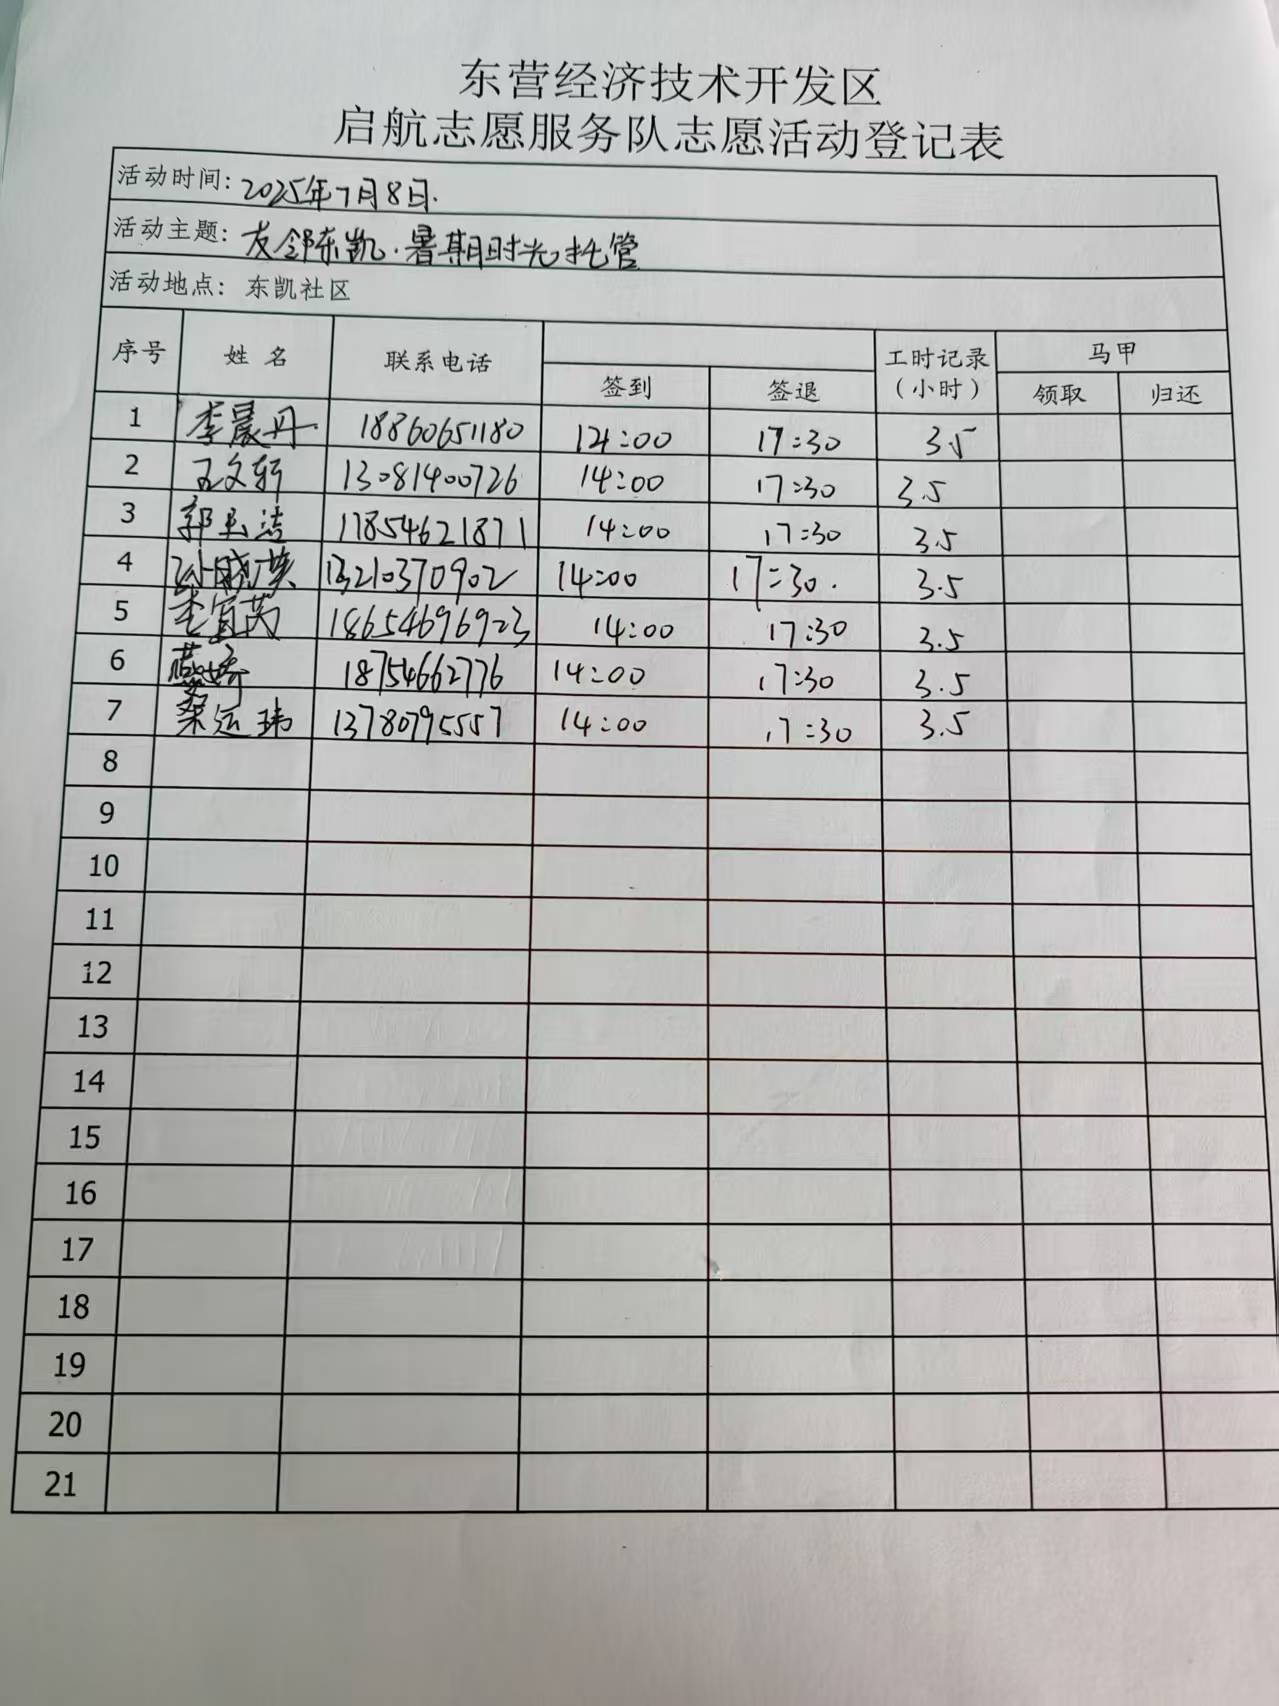 东营经济技术开发区
启航志愿服务队志愿活动登记表
活动时间: 2025年7月8日.
活动主题: 友邻东凯.暑期时光托管
活动地点: 东凯社区
序号 姓名 联系电话 签到 签退 工时记录（小时） 马甲 领取 归还
1 李晨丹 18860651180 14:00 17:30 3.5
2 王文轩 13081400726 14:00 17:30 3.5
3 郭玉洁 17854621871 14:00 17:30 3.5
4 孙晓英 13210370902 14:00 17:30. 3.5
5 李宜芮 18654696923 14:00 17:30 3.5
6 燕娇 18754662776 14:00 17:30 3.5
7 綦运玮 13780795557 14:00 17:30 3.5
8
9
10
11
12
13
14
15
16
17
18
19
20
21